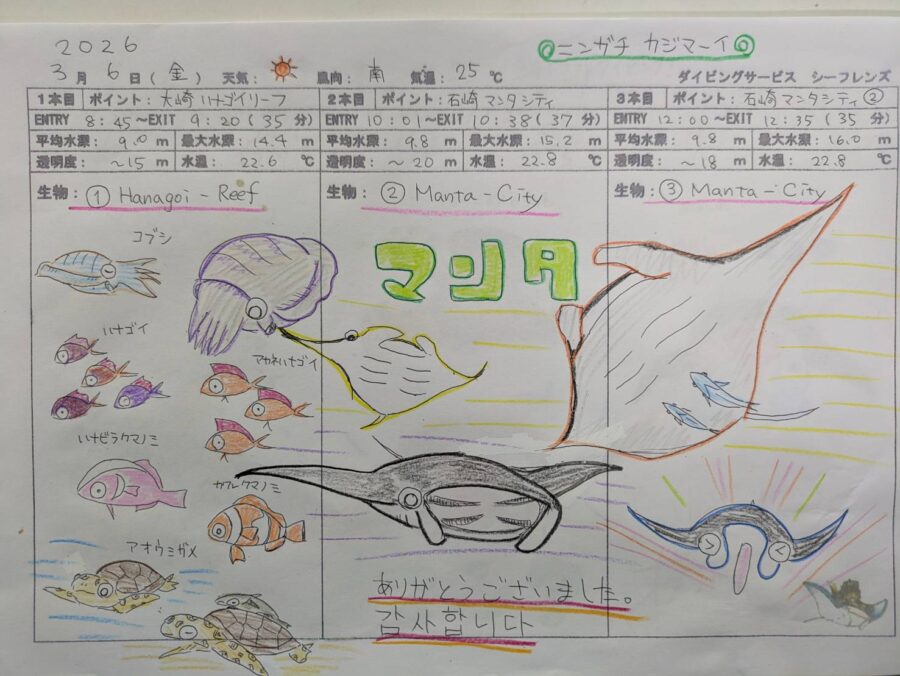 2026
ニンガチ カジマーイ
3月 6日(金) 天気: 風向: 南 気温: 25℃ ダイビングサービス シーフレンズ
1本目 ポイント: 大崎 ハナゴイリーフ
ENTRY 8:45~EXIT 9:20(35分)
平均水深: 9.0 m 最大水深: 14.4 m
透明度: ~15 m 水温: 22.6 ℃
生物: ① Hanagoi-Reef
コブシ
ハナゴイ
アカネハナゴイ
ハナビラクマノミ
カクレクマノミ
アオウミガメ
2本目 ポイント: 石崎 マンタシティ
ENTRY 10:01~EXIT 10:38(37分)
平均水深: 9.8 m 最大水深: 15.2 m
透明度: ~20 m 水温: 22.8 ℃
生物: ② Manta-City
マンタ
3本目 ポイント: 石崎 マンタシティ②
ENTRY 12:00~EXIT 12:35(35分)
平均水深: 9.8 m 最大水深: 16.0 m
透明度: ~18 m 水温: 22.8 ℃
生物: ③ Manta-City
ありがとうございました。
감사합니다